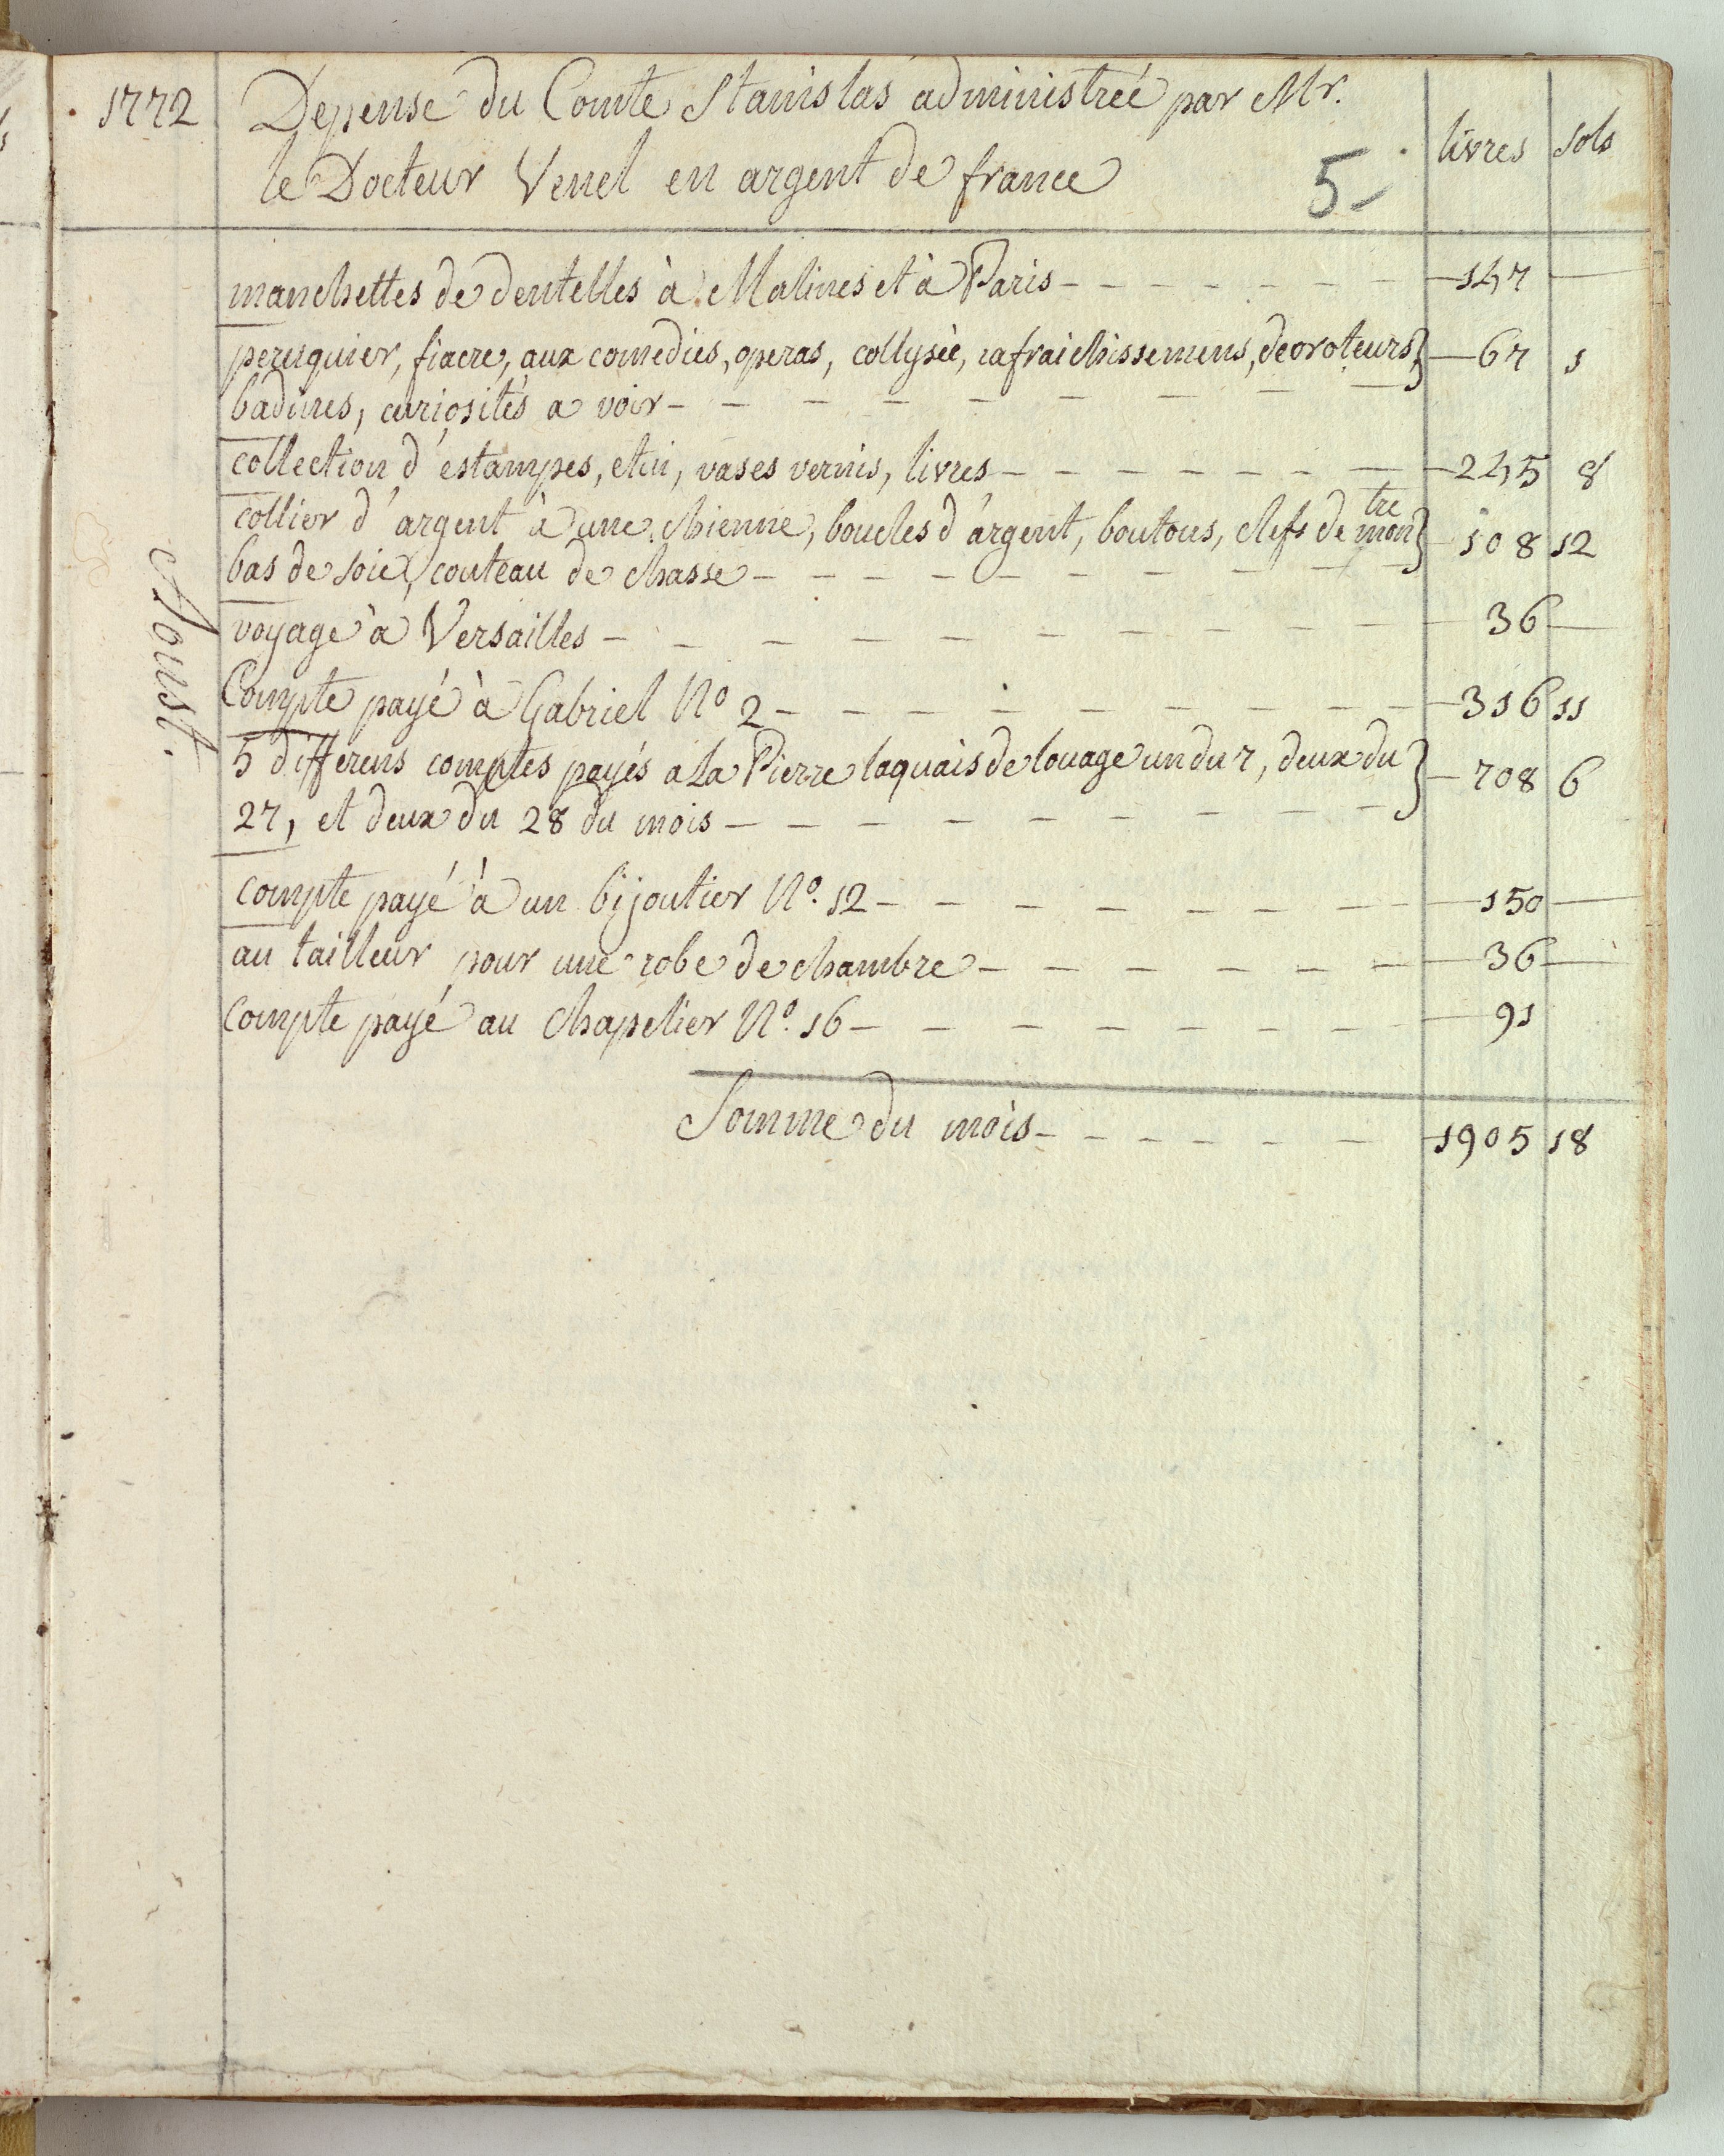 1772
Depense du Comte Stanislas administreé par Mr.
le Docteur Venel en argent de france
5
livres sols
manchettes de dentelles à Malines et à Paris - - - - - - - 147 —
peruquier, fiacre, aux comedies, operas, collyseè, rafraichissemens, decroteurs, } 67 1
badines, curiosités a voir - - - - - - - - -
collection d'estampes, etui, vases vernis, livres - - - - - - - 245 8
collier d'argent à une chienne, boucles d'argent, boutons, clefs de montre } 108 12
bas de soie, couteau de chasse - - - - - - - - -
voyage à Versailles - - - - - - - - - - 36 —
Compte payé à Gabriel No 2 - - - - - - - - 316 11
5 differens comptes payés a La Pierre laquais de louage un du 7, deux du } 708 6
27, et deux du 28 du mois - - - - - - - - -
compte payé à un bijoutier No. 12 - - - - - - - - 150 —
au tailleur pour une robe de chambre - - - - - - - 36 —
Compte payé au chapelier No. 16 - - - - - - - - 91
Aoust.
Somme du mois - - - - - - - 1905 18